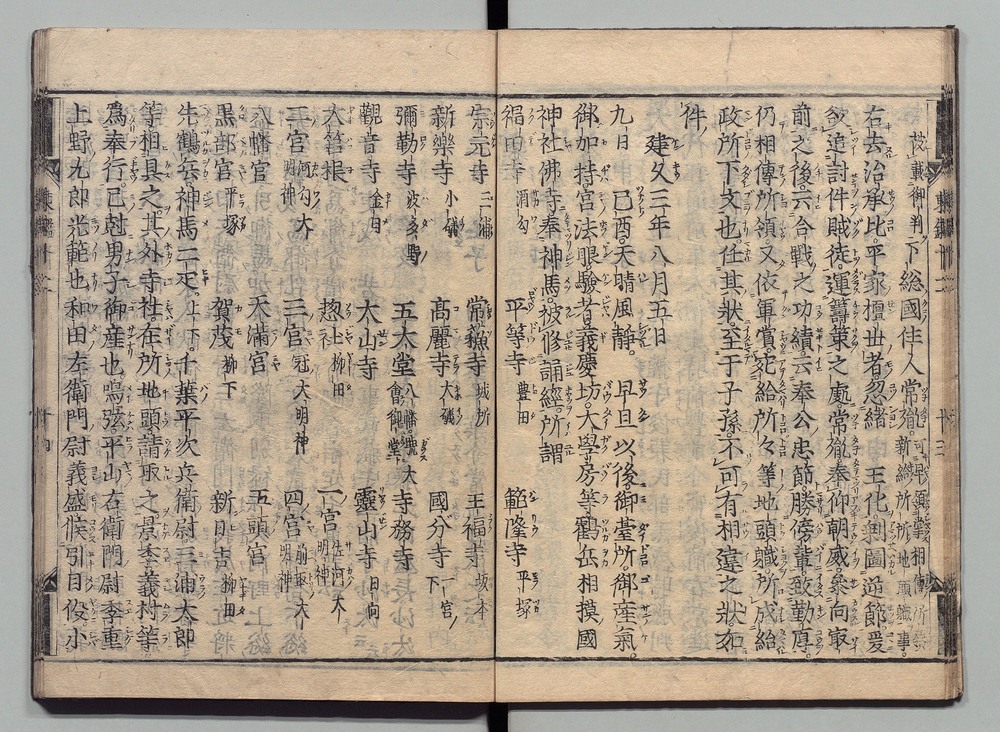 被載御判下総國住人常胤
可早領掌相傳所領
新給所所地頭職事
右去治承比平家擅世者忽緒 王化剰圖逆節爰
欲追討件賊徒運籌策之處常胤奉仰朝威参向寂
前之後云合戰之功績云奉公忠節勝傍輩致勤厚
仍相傳所領又依軍賞宛給所々等地頭職所成給
政所下文也任其狀至于子孫不可有相違之狀如
件
建久三年八月五日
九日 己酉天晴風靜 早旦以後御臺所御産氣
御加持宮法眼驗者義慶坊大學房等鶴岳相摸國
神社佛寺奉神馬被修誦經所謂
福田寺 酒勾 平等寺 豊田 範隆寺 平塚
宗元寺 三浦 常蘓寺 城所 王福寺 坂本
新樂寺 小磯 高麗寺 大磯 國分寺 一宮下
彌勒寺 波多野 五大堂 八幡号大會御堂 寺務寺
觀音寺 金目 大山寺 靈山寺 日向
大筥根 惣社 柳田 一宮 佐河大明神
二宮 河勾大明神 三宮 冠大明神 四宮 前取大明神
八幡宮 天滿宮 五頭宮
黒部宮 平塚 賀茂 柳下 新日吉 柳田
先鶴岳神馬二疋上下千葉平次兵衛尉三浦太郎
等相具之其外寺社在所地頭請取之景季義村等
爲奉行已尅男子御産也鳴弦平山右衛門尉季重
上野九郎光範也和田左衛門尉義盛候引目役小
東鑑十二
十三
東鑑十二
十四